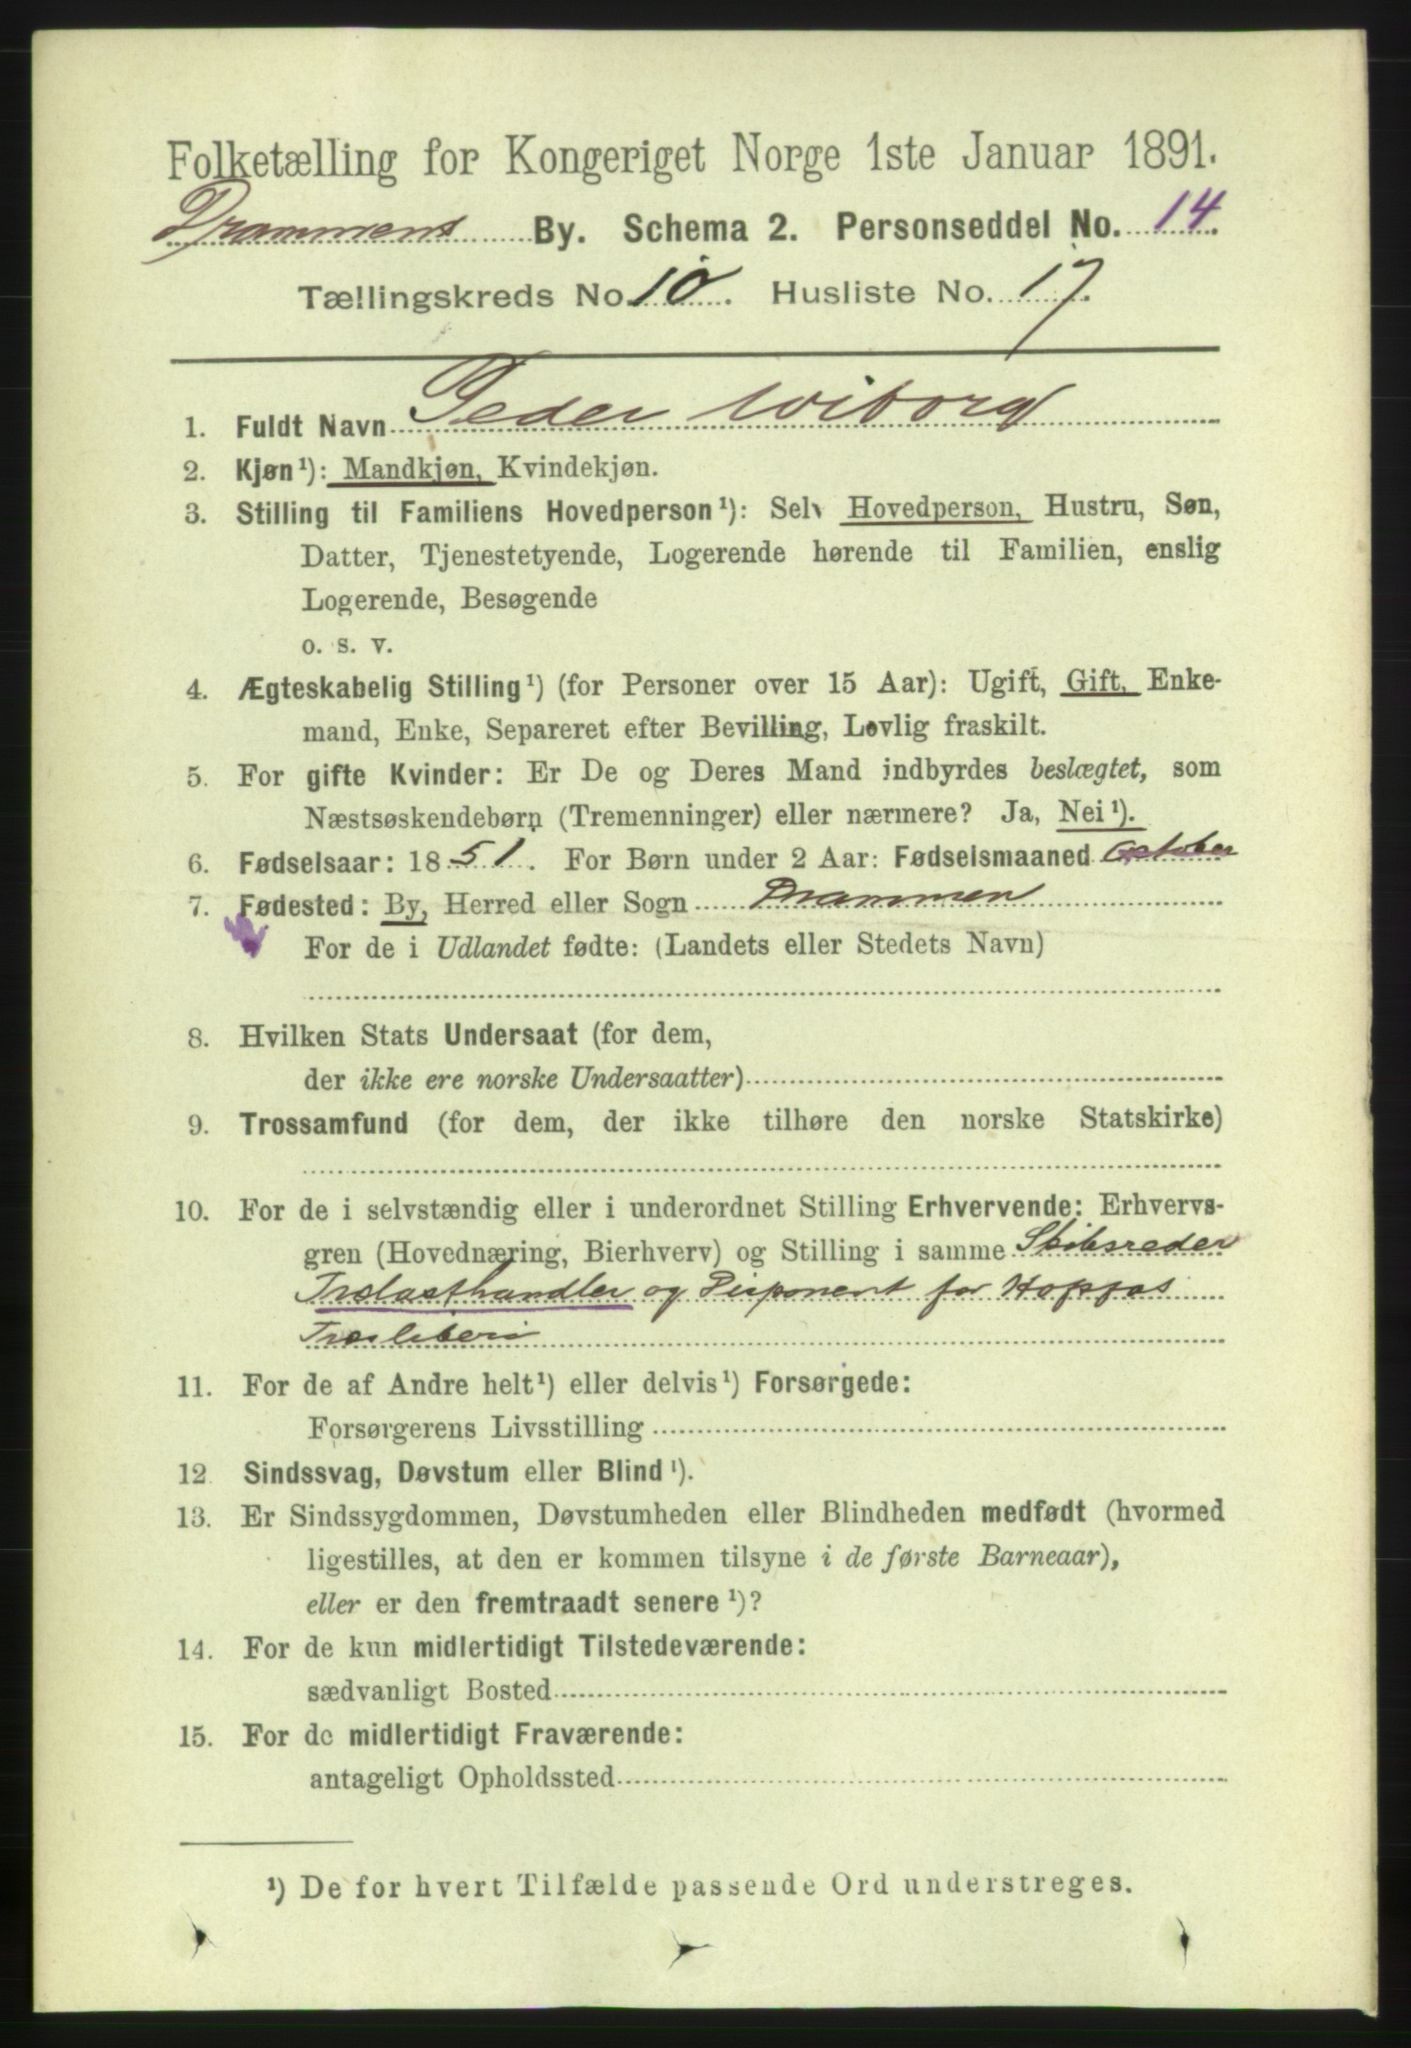 Folketælling for Kongeriget Norge 1ste Januar 1891.
Drammens By. Schema 2. Personseddel No. 14.
Tællingskreds No. 10. Husliste No. 17.
1. Fuldt Navn Peder Wiborg
2. Kjøn ¹): Mandkjøn, Kvindekjøn.
3. Stilling til Familiens Hovedperson ¹): Selv Hovedperson, Hustru, Søn,
Datter, Tjenestetyende, Logerende hørende til Familien, enslig
Logerende, Besøgende
o. s. v.
4. Ægteskabelig Stilling ¹) (for Personer over 15 Aar): Ugift, Gift, Enke-
mand, Enke, Separeret efter Bevilling, Lovlig fraskilt.
5. For gifte Kvinder: Er De og Deres Mand indbyrdes beslægtet, som
Næstsøskendebørn (Tremenninger) eller nærmere? Ja, Nei ¹).
6. Fødselsaar: 1851. For Børn under 2 Aar: Fødselsmaaned October
7. Fødested: By, Herred eller Sogn Drammen
For de i Udlandet fødte: (Landets eller Stedets Navn)
8. Hvilken Stats Undersaat (for dem,
der ikke ere norske Undersaatter)
9. Trossamfund (for dem, der ikke tilhøre den norske Statskirke)
10. For de i selvstændig eller i underordnet Stilling Erhvervende: Erhvervs-
gren (Hovednæring, Bierhverv) og Stilling i samme Skibsreder
Trælasthandler og Disponent for Hopfos
Træsliberi
11. For de af Andre helt ¹) eller delvis ¹) Forsørgede:
Forsørgerens Livsstilling
12 Sindssvag, Døvstum eller Blind ¹).
13. Er Sindssygdommen, Døvstumheden eller Blindheden medfødt (hvormed
ligestilles, at den er kommen tilsyne i de første Barneaar),
eller er den fremtraadt senere ¹)?
14. For de kun midlertidigt Tilstedeværende:
sædvanligt Bosted
15. For de midlertidigt Fraværende:
antageligt Opholdssted
¹) De for hvert Tilfælde passende Ord understreges.